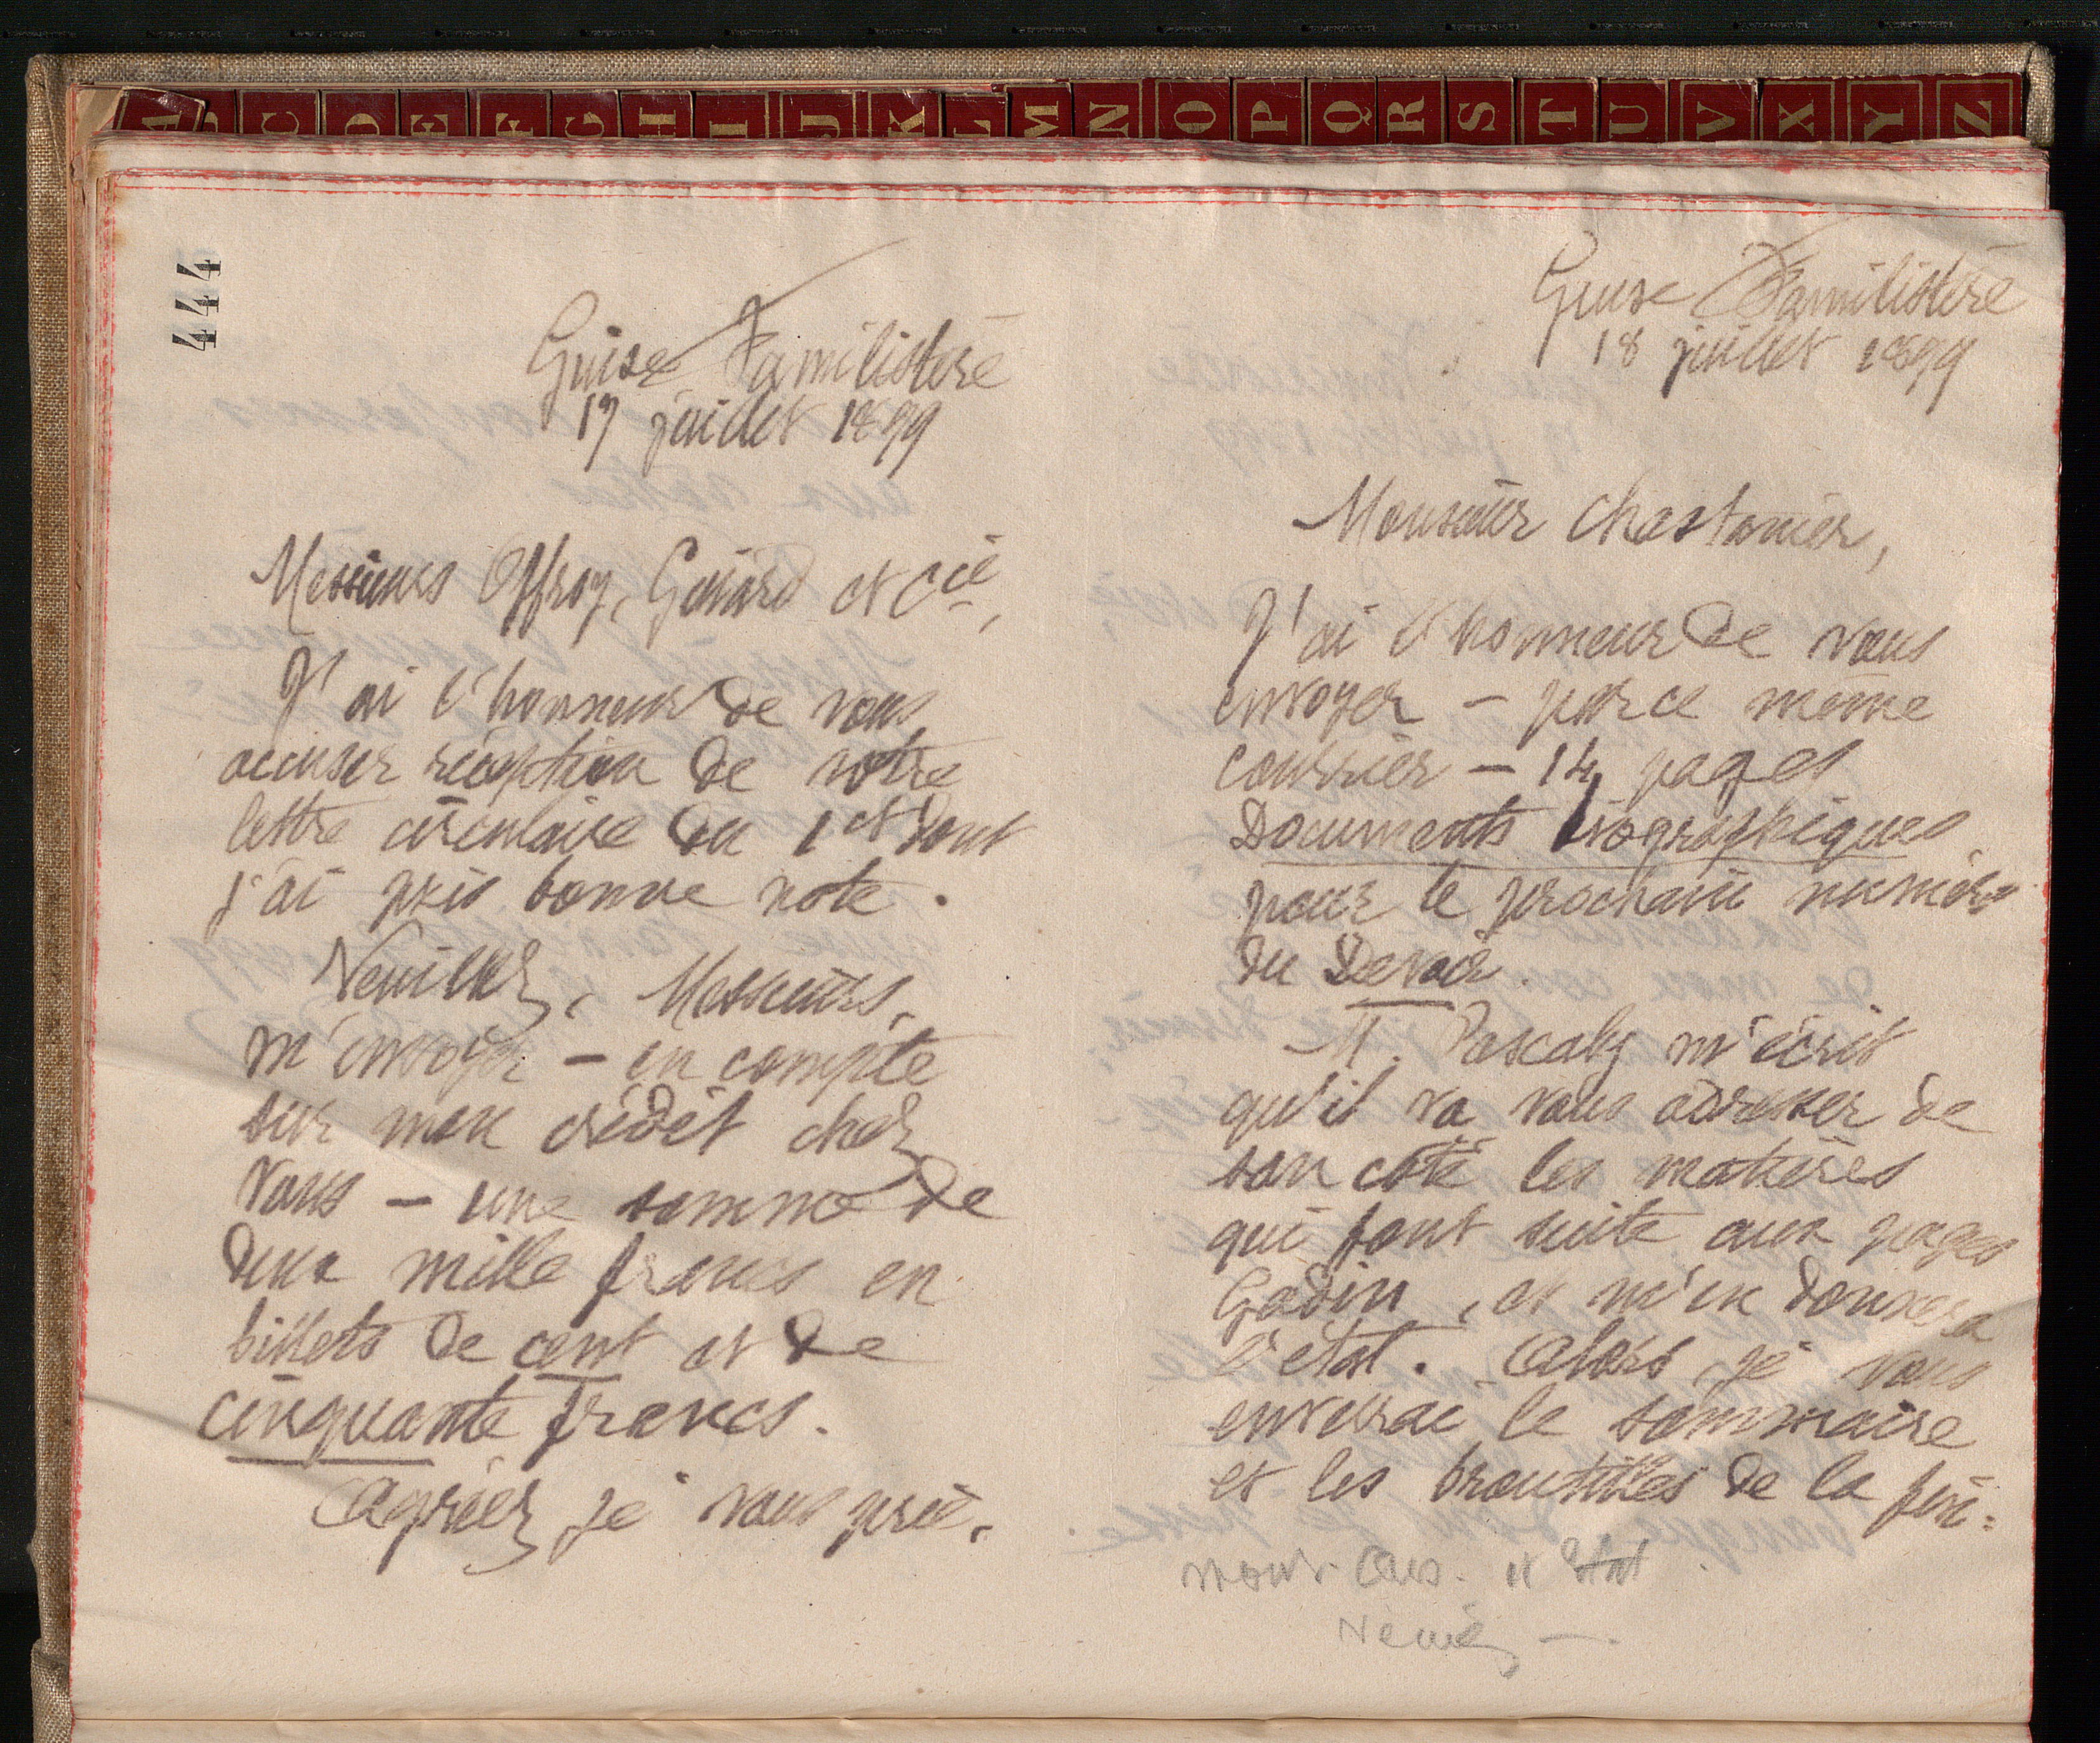 A C D E F G H I J K L M N O P Q R S T U V X Y Z
444
Guise Familistère
17 juillet 1899
Messieurs Offroy, Guiard et Cie,
J'ai l'honneur de vous
accuser réception de votre
lettre circulaire du 1er dont
j'ai pris bonne note.
Veuillez, Messieurs,
m'envoyer – en compte
sur mon crédit chez
vous – une somme de
deux mille francs en
billets de cent et de
cinquante francs.
Agréez je vous prie,
Guise Familistère
18 juillet 1899
Monsieur Chastanier,
J'ai l'honneur de vous
envoyer – par ce même
courrier – 14 pages
Documents biographiques
pour le prochain numéro
du Devoir.
M. Pascaly m'écrit
qu'il va vous adresser de
son côté les matières
qui font suite aux pages
Godin, et m'en donnera
l'état. Alors je vous
enverrai le sommaire
et les broutilles de la fin :
mouv. Ass. et Etat